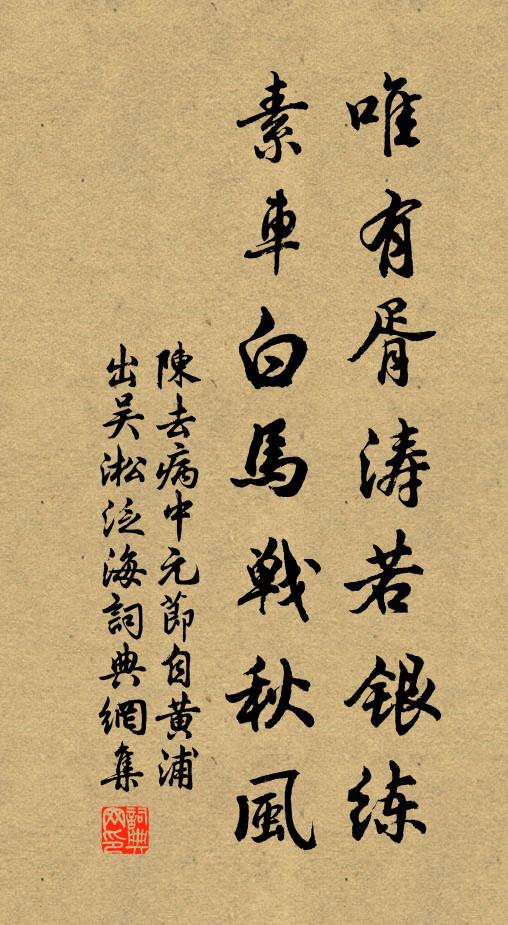 唯有胥濤若銀練
素車白馬戰秋風
陳去病中元節自黃浦
出吳淞泛海詞典網集
詞典
网印